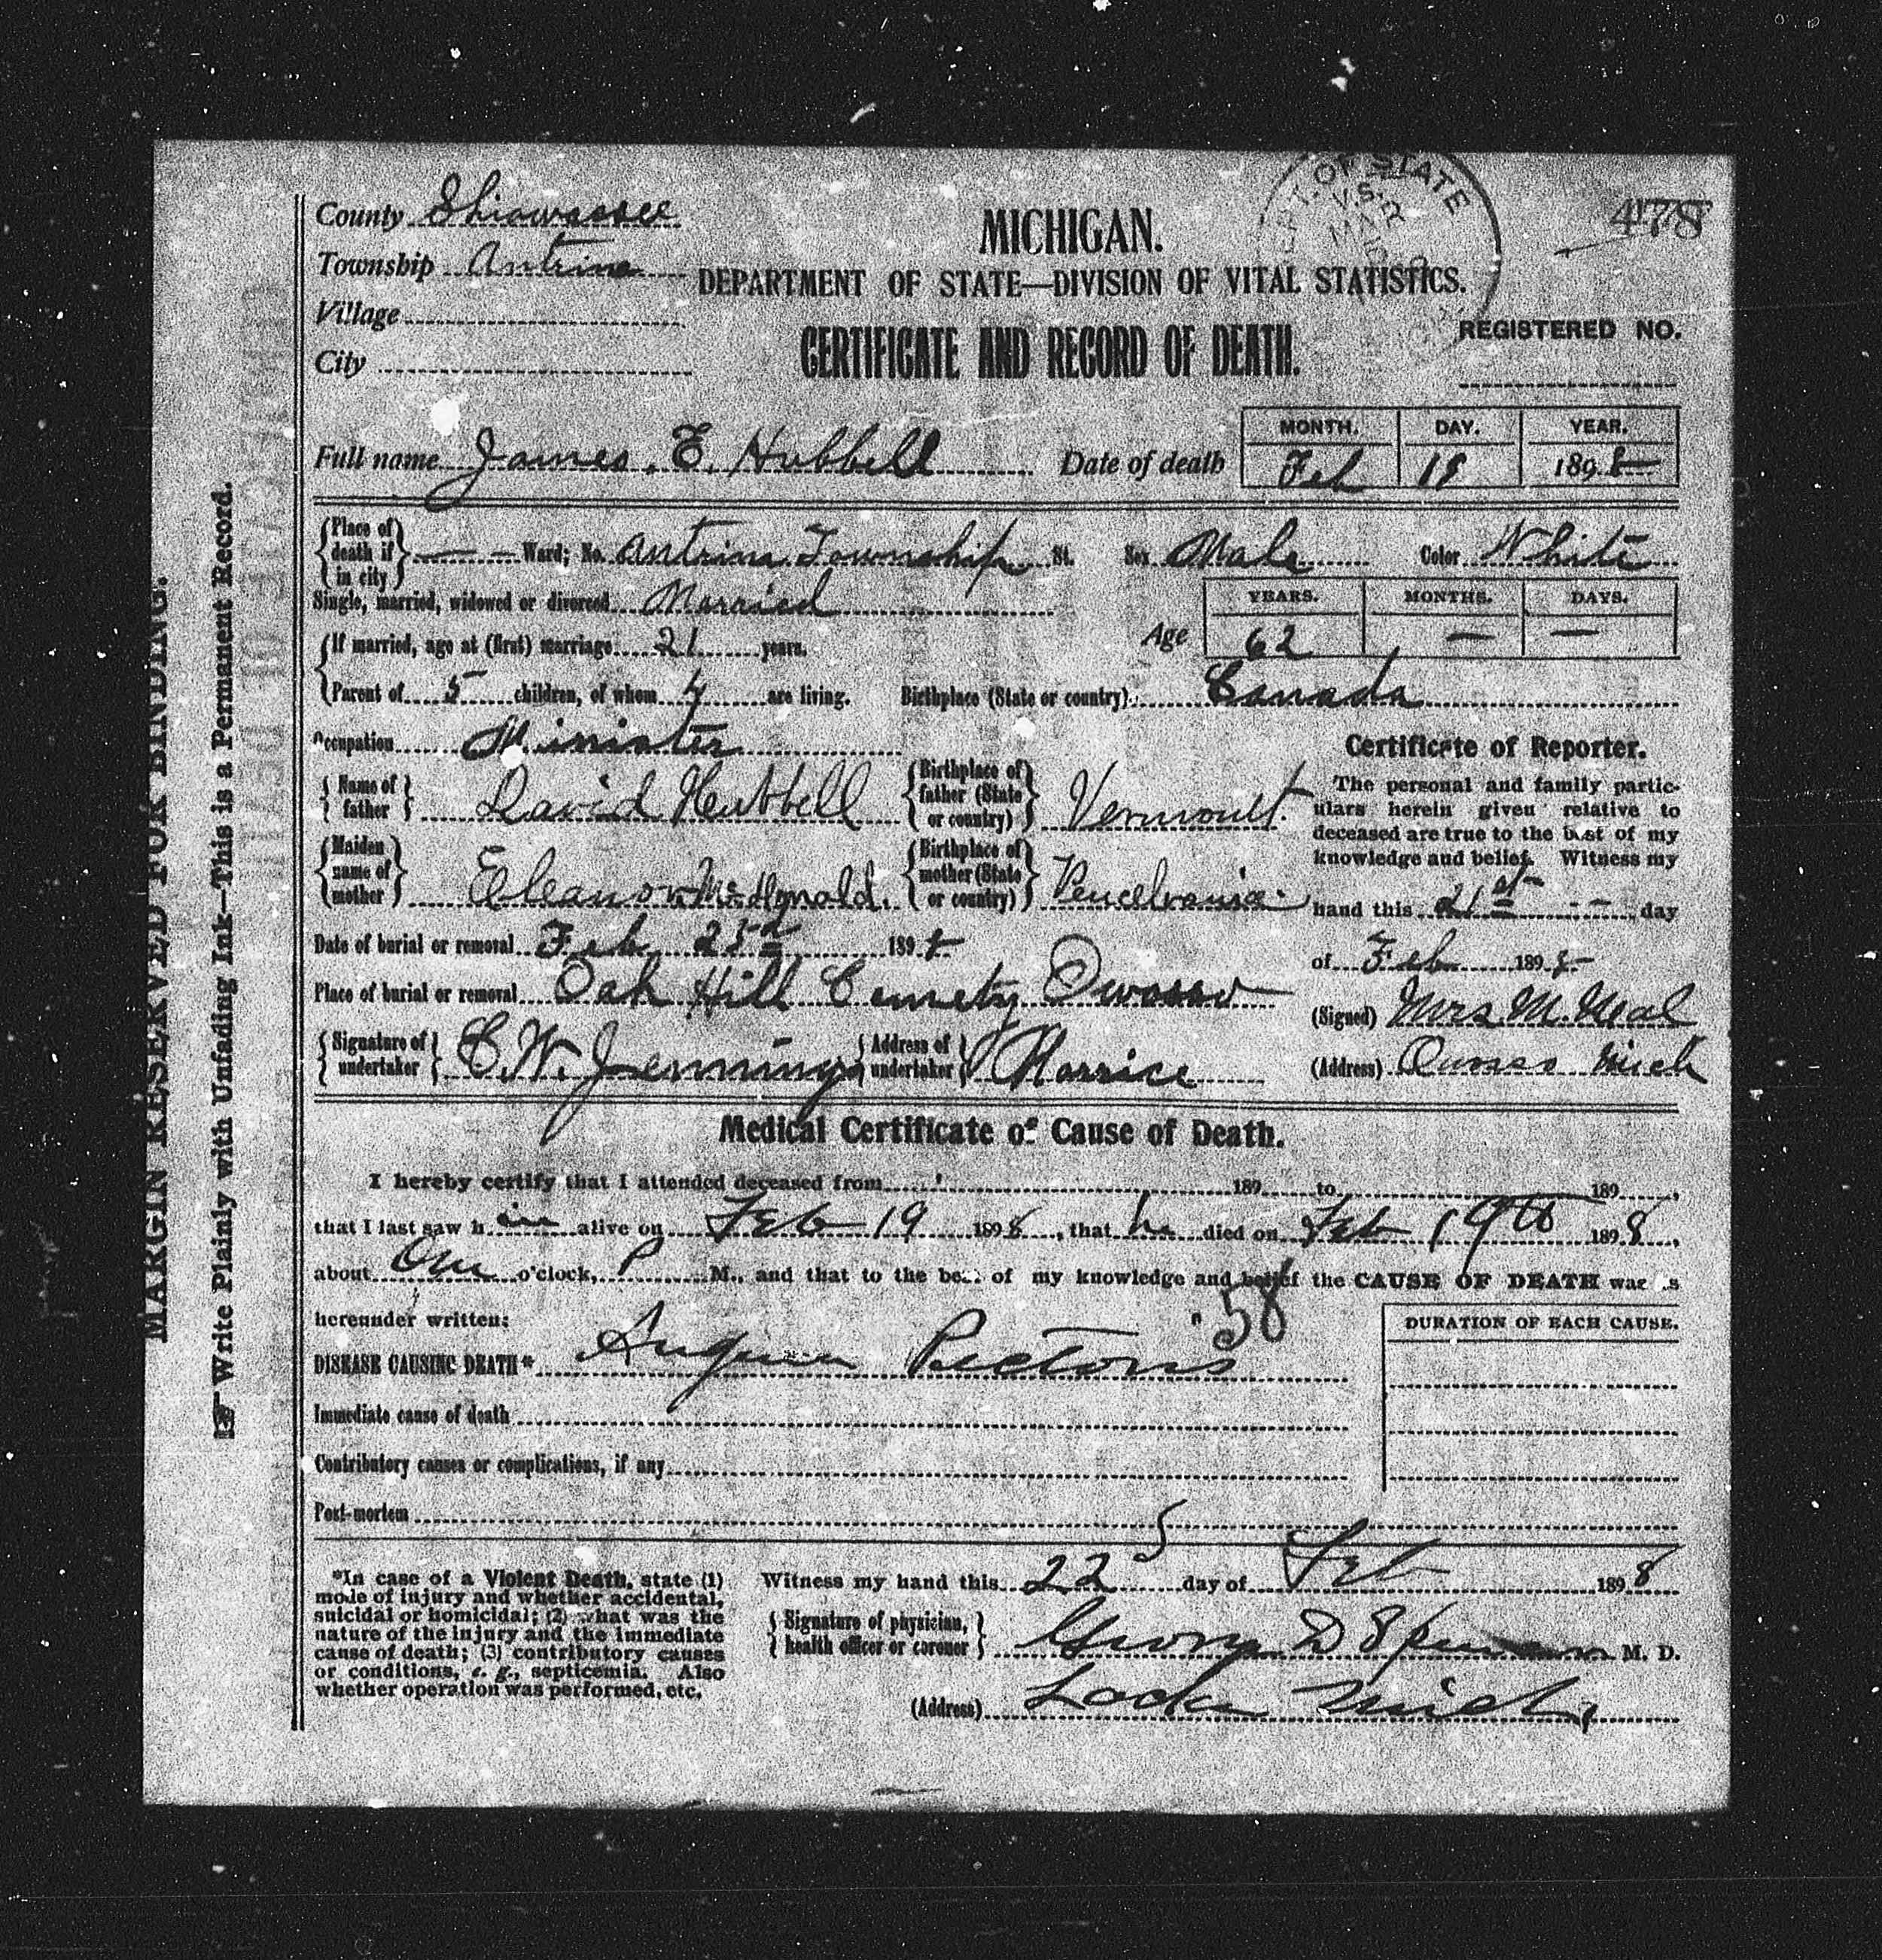 478
County Shiawassee
Township Antrim
Village
City
MICHIGAN.
DEPARTMENT OF STATE—DIVISION OF VITAL STATISTICS.
CERTIFICATE AND RECORD OF DEATH.
OF STATE
V.S.
MAR
REGISTERED NO.
Full name James. E. Hubbell Date of death
MONTH. DAY. YEAR.
Feb 18 1898
Place of death if in city — — Ward; No. Antrim Township St. Sex Male Color White
Single, married, widowed or divorced Married
If married, age at (first) marriage 21 years.
Age YEARS. MONTHS. DAYS.
62 — —
Parent of 5 children, of whom 4 are living. Birthplace (State or country) Canada
Occupation Minister
Name of father David Hubbell Birthplace of father (State or country) Vermoult.
Maiden name of mother Eleanor McDonald. Birthplace of mother (State or country) Pencelvania
Date of burial or removal Feb 1898
Place of burial or removal Oak Hill Cemety Owosso
Signature of undertaker C.W. Jennings Address of undertaker Morrice
Certificate of Reporter.
The personal and family partic-
ulars herein given relative to
deceased are true to the best of my
knowledge and belief. Witness my
hand this 21st day
of Feb 1898
(Signed) Mrs M. Neal
(Address) Owosso Mich
Medical Certificate of Cause of Death.
I hereby certify that I attended deceased from 189 to 189 ,
that I last saw him alive on Feb 19 1898, that he died on Feb 19th 1898,
about One o'clock, P M., and that to the best of my knowledge and belief the CAUSE OF DEATH was as
hereunder written:
58
DISEASE CAUSING DEATH* Angina Pectoris
Immediate cause of death
Contributory causes or complications, if any
Post-mortem
DURATION OF EACH CAUSE.
*In case of a Violent Death, state (1)
mode of injury and whether accidental,
suicidal or homicidal; (2) what was the
nature of the injury and the immediate
cause of death; (3) contributory causes
or conditions, e. g., septicemia. Also
whether operation was performed, etc.
Witness my hand this 22 day of Feb 1898
Signature of physician, health officer or coroner George D M. D.
(Address) Locke Mich.
MARGIN RESERVED FOR BINDING.
Write Plainly with Unfading Ink—This is a Permanent Record.